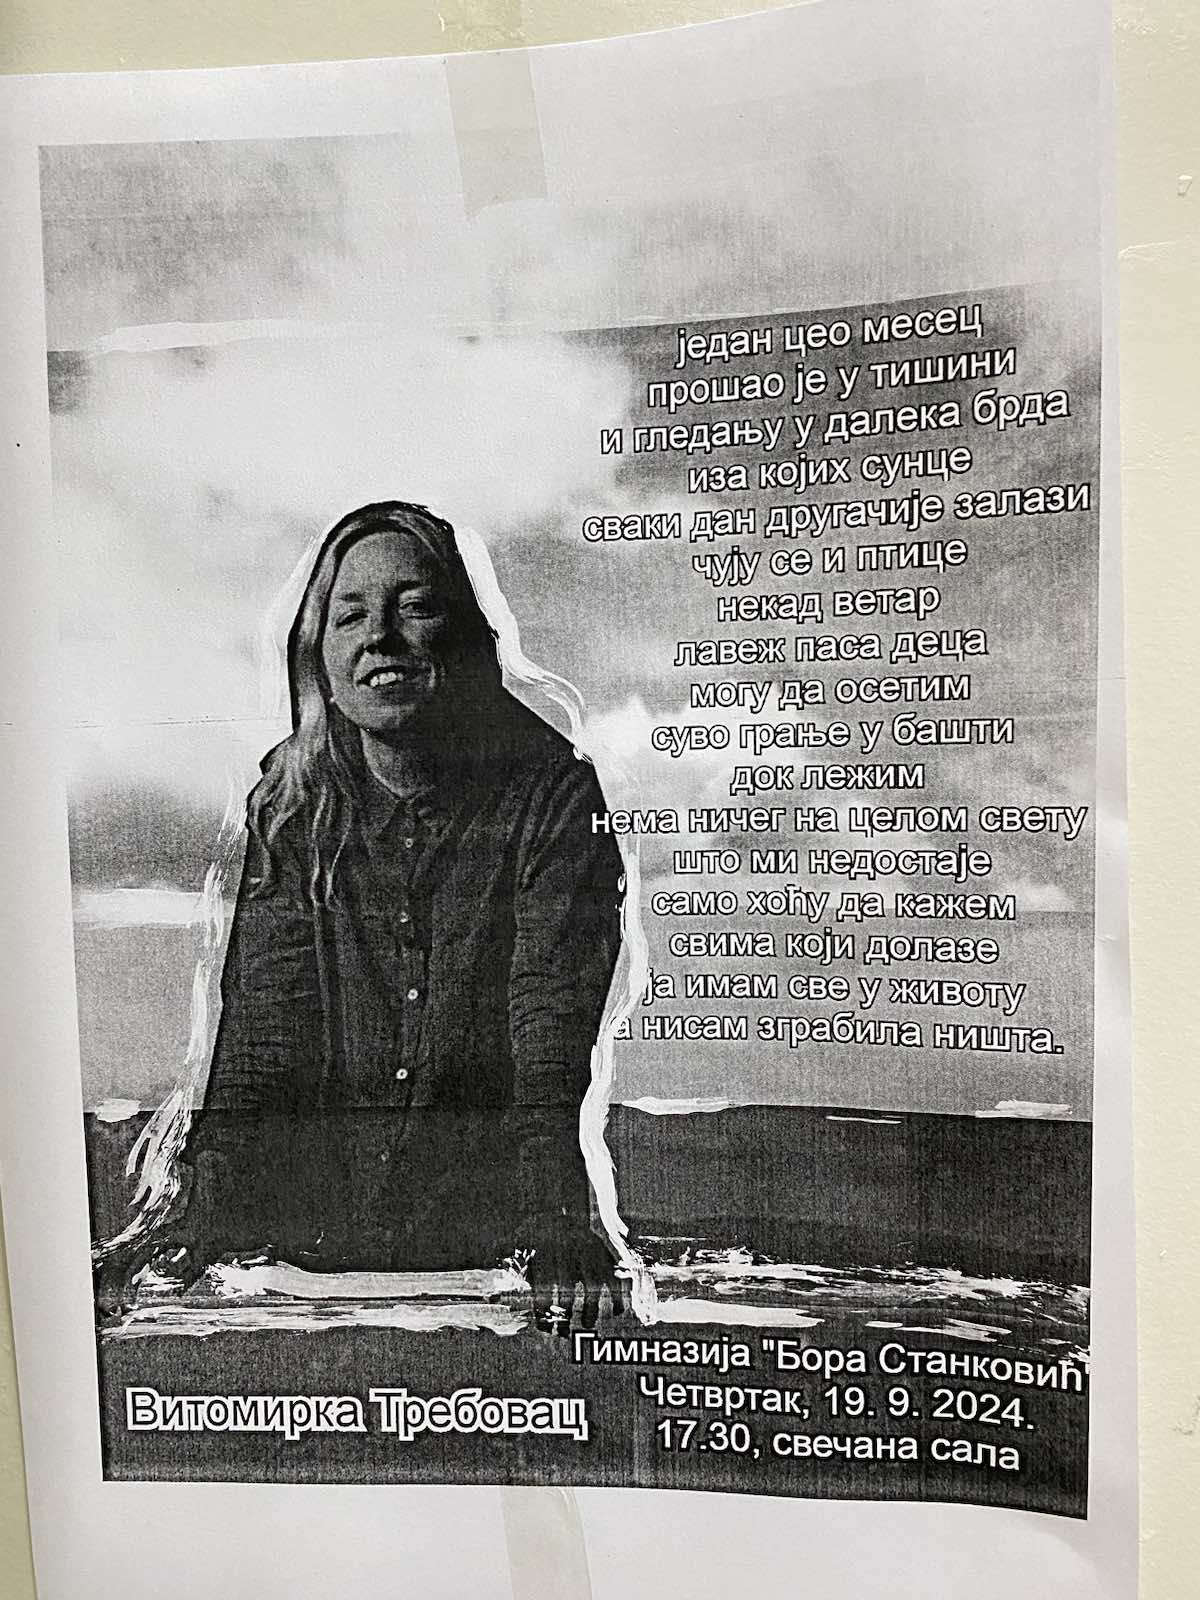 један цео месец
прошао је у тишини
и гледању у далека брда
иза којих сунце
сваки дан другачије залази
чују се и птице
некад ветар
лавеж паса деца
могу да осетим
суво грање у башти
док лежим
нема ничег на целом свету
што ми недостаје
само хоћу да кажем
свима који долазе
ја имам све у животу
а нисам зграбила ништа.
Гимназија "Бора Станковић"
Четвртак, 19. 9. 2024.
17.30, свечана сала
Витомирка Требовац